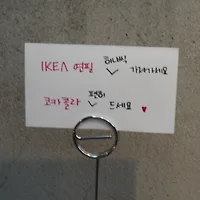 IKEA 연필 하나씩 가져가세요
코카콜라 편히 드세요 ♥